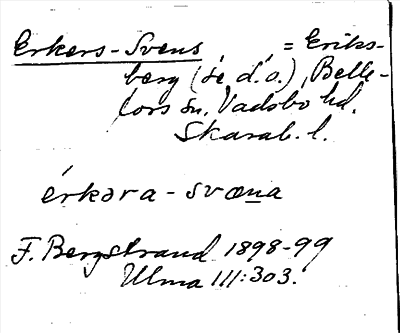 Erkers-Svens = Eriks-
berg (se d.o.), Belle-
fors sn. Vadsbo hd.
Skarab. l.
érkəra - svæna
F. Bergstrand 1898-99
Ulma 111:303.